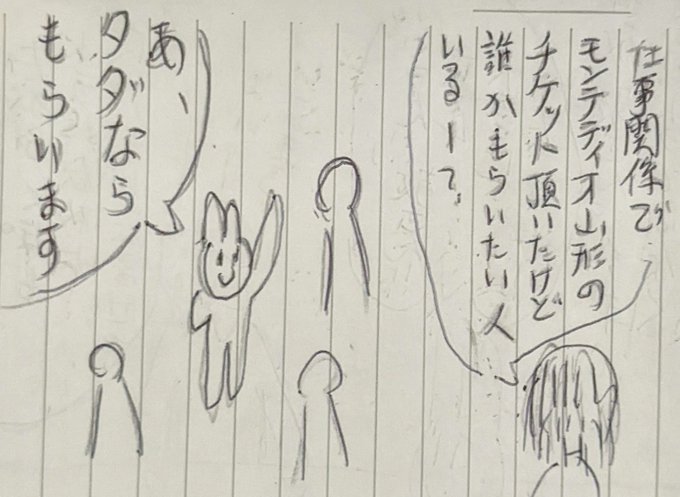 仕事関係で
モンテディオ山形の
チケット頂いたけど
誰かもらいたい人
いるー？
あ、
タダなら
もらいます